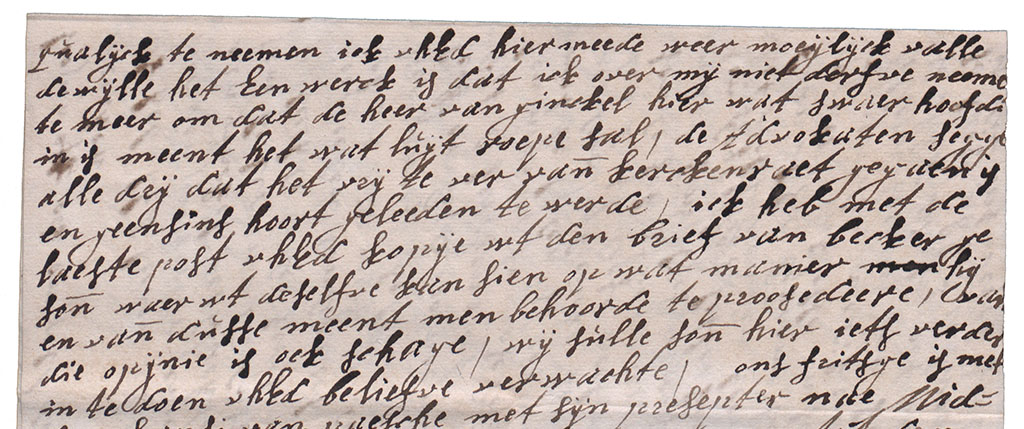 qualyck te neemen ick uhEd hiermeede weer moeijlyck valle
dewylle het Een werck is dat ick over mij niet derfve neeme
te meer om dat de heer van ginckel hier wat swaer hoofdi
in is meent het wat luyt roepe sal, de Advokaten segge
alle drij dat het vrij te ver van kerckenraet gegaen is
en geensins hoort geleeden te werde, ick heb met de
laeste post uhEd kopije wt den brief van becker ge
son waer wt deselfve kan sien op wat manier hij
en van dusse meent men behoorde te proosedeere, van
die opijnie is ock schage, wij sulle son hier iets verder
in te doen uhEd beliefve verwachte, ons fritsge is met
van paesche met sijn presepter nae Mid=